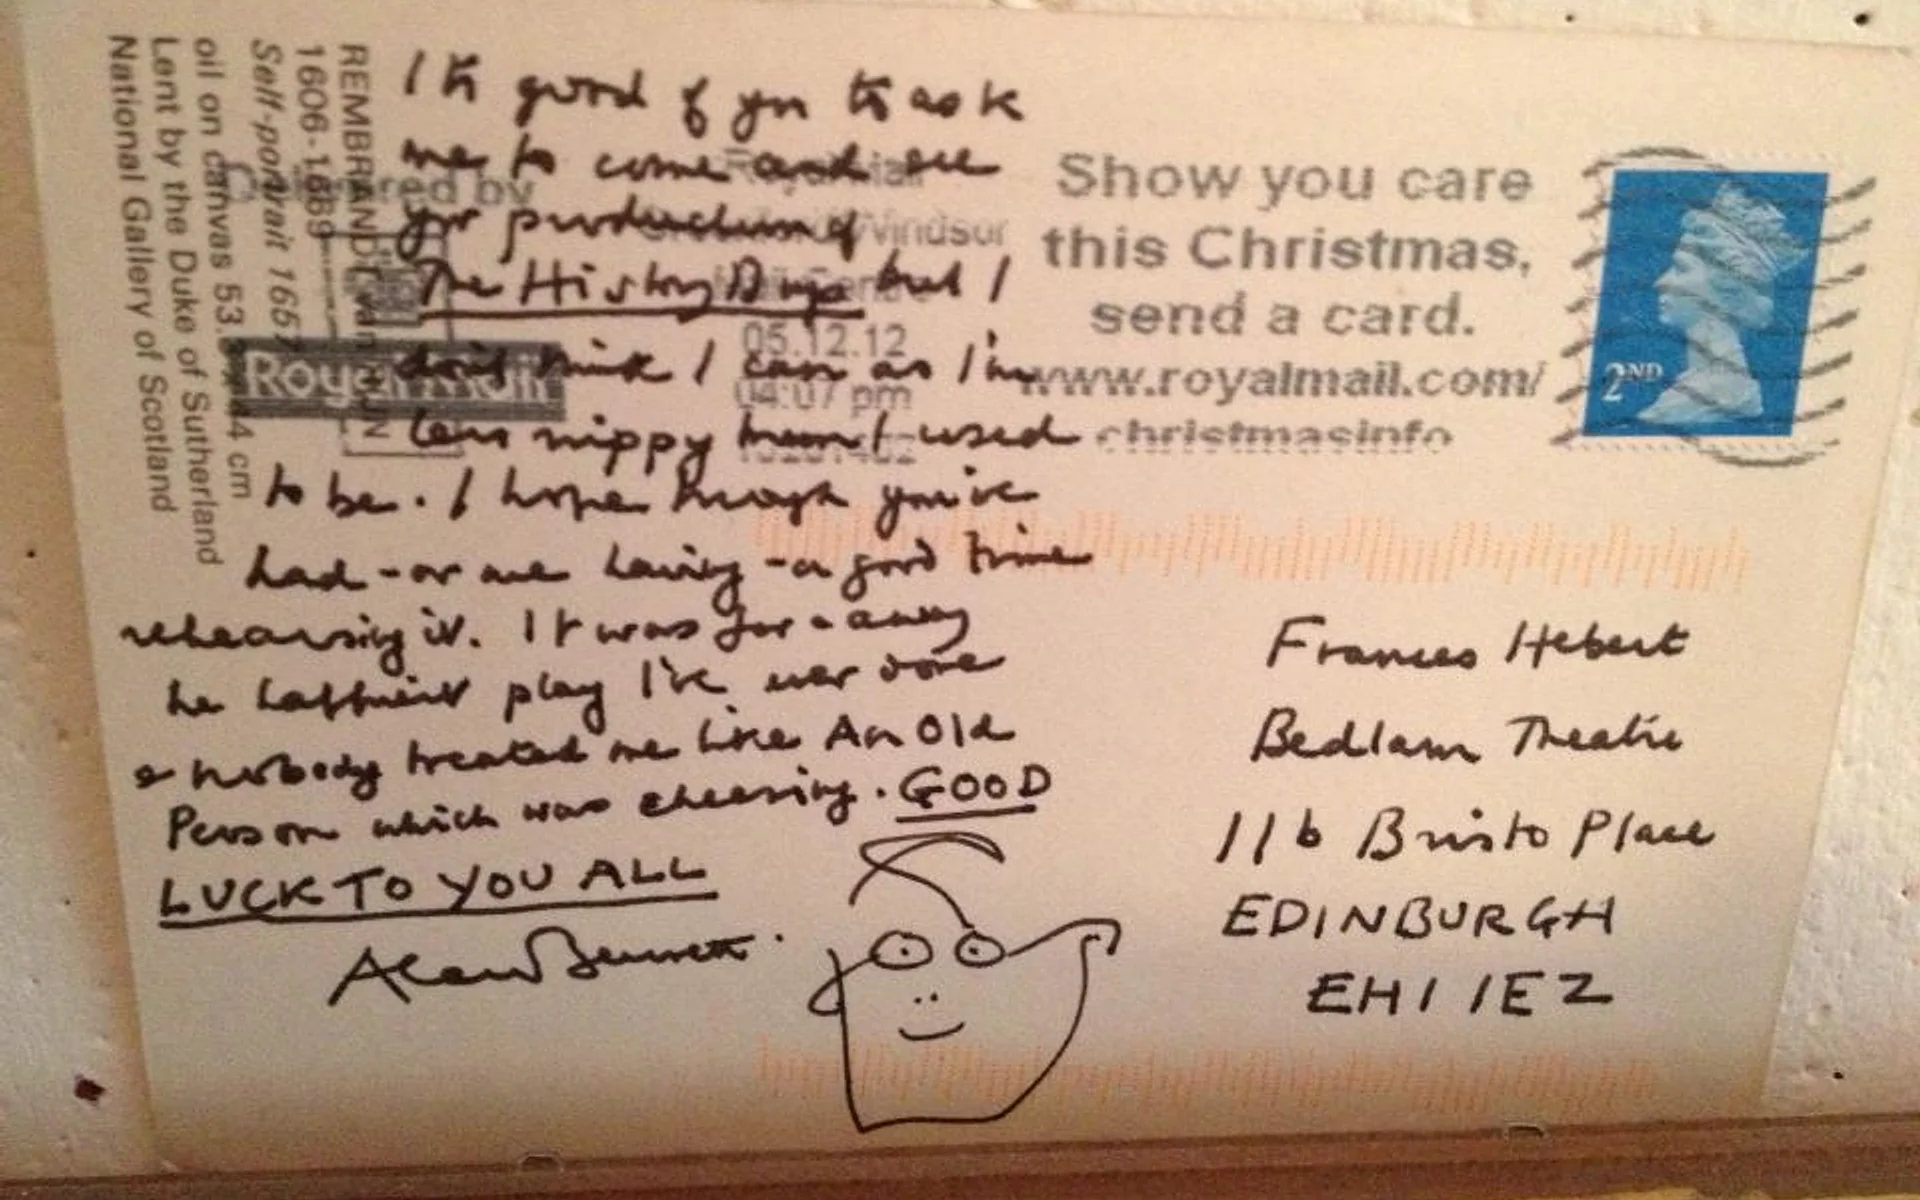 It is good of you to ask
me to come and see
yr production of
The History Boys but I
don't think I can as I'm
less nippy than I used
to be. I hope though you've
had - or are having - a good time
rehearsing it. It was far & away
the happiest play I've ever done
& nobody treated me like An Old
Person which was cheering. GOOD
LUCK TO YOU ALL
Alan Bennett.
REMBRANDT van RIJN
1606-1669
Self-portrait 1657
oil on canvas 53. 44 cm
Lent by the Duke of Sutherland
National Gallery of Scotland
Delivered by
Royal Mail
Royal Mail
Windsor
Mail Centre
05.12.12
04:07 pm
Show you care
this Christmas,
send a card.
www.royalmail.com/
christmasinfo
2ND
Frances Hebert
Bedlam Theatre
11b Bristo Place
EDINBURGH
EH1 1EZ